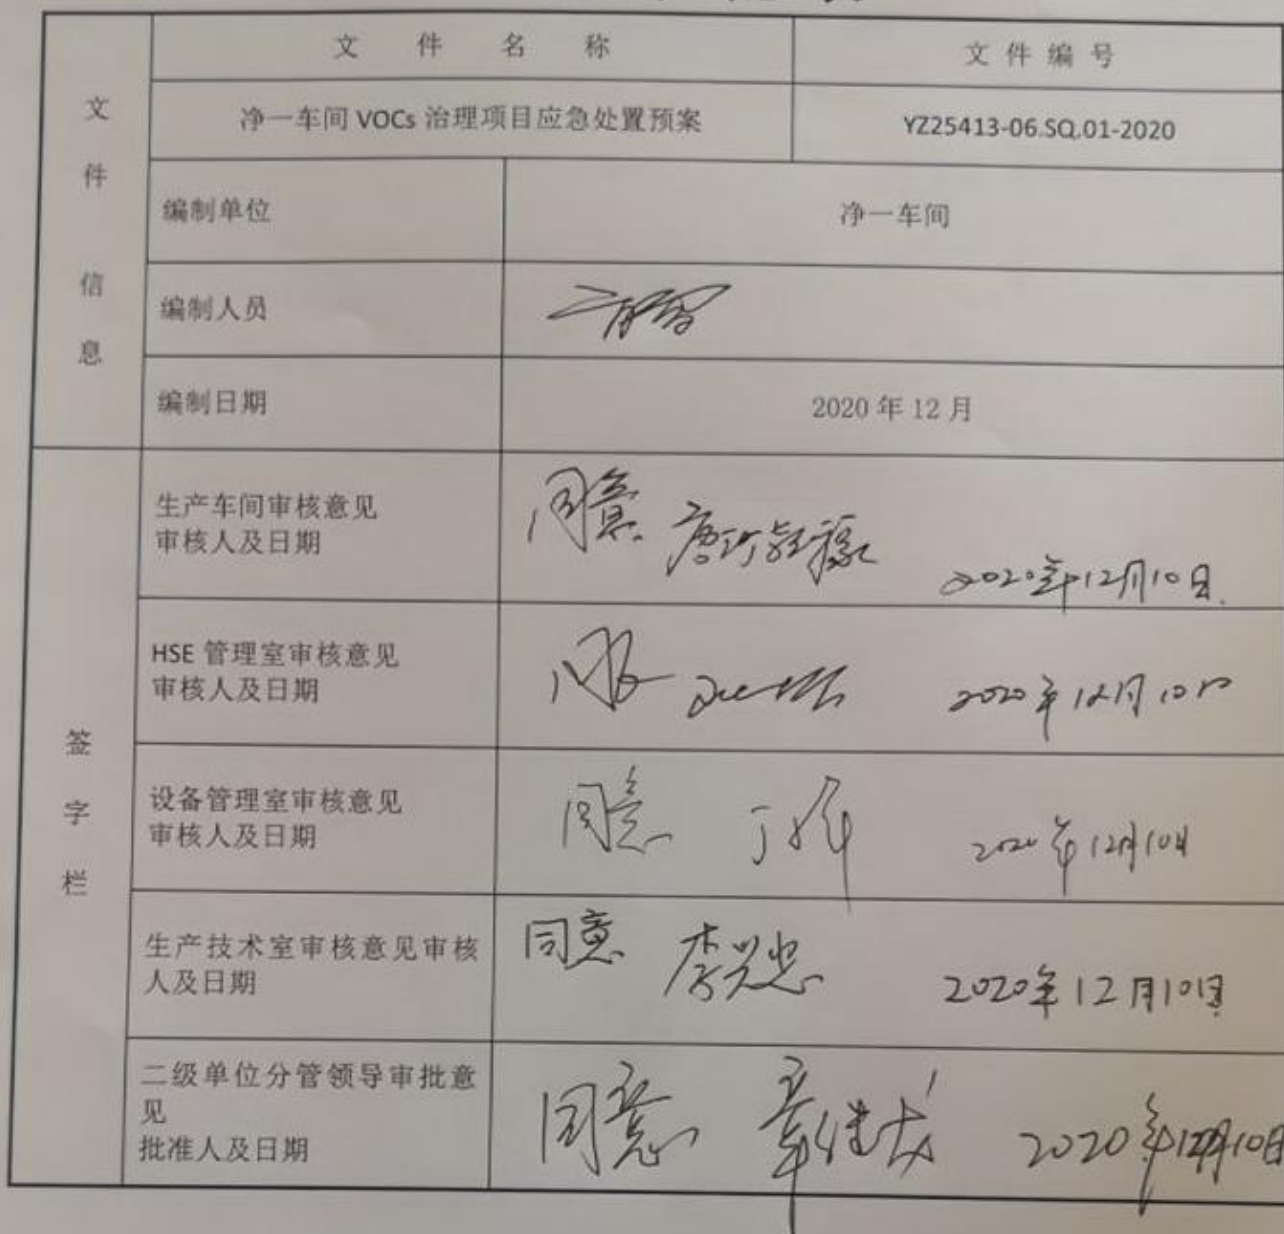 文件名称
文件编号
文件信息
净一车间 VOCs 治理项目应急处置预案
YZ25413-06.SQ.01-2020
编制单位
净一车间
编制人员
编制日期
2020 年 12 月
签字栏
生产车间审核意见
审核人及日期
同意
2020年12月10日
HSE 管理室审核意见
审核人及日期
同意
2020年12月10日
设备管理室审核意见
审核人及日期
同意
2020年12月10日
生产技术室审核意见审核
人及日期
同意 李兴忠 2020年12月10日
二级单位分管领导审批意
见
批准人及日期
同意
2020年12月10日